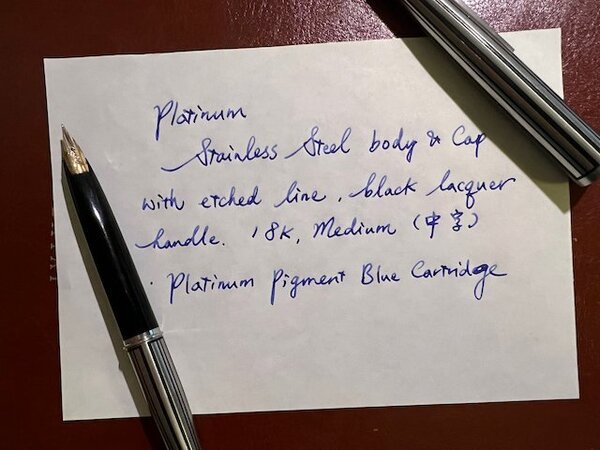 Platinum
Stainless Steel body & Cap
with etched line, black lacquer
handle. 18K, Medium (中字)
· Platinum Pigment Blue Cartridge